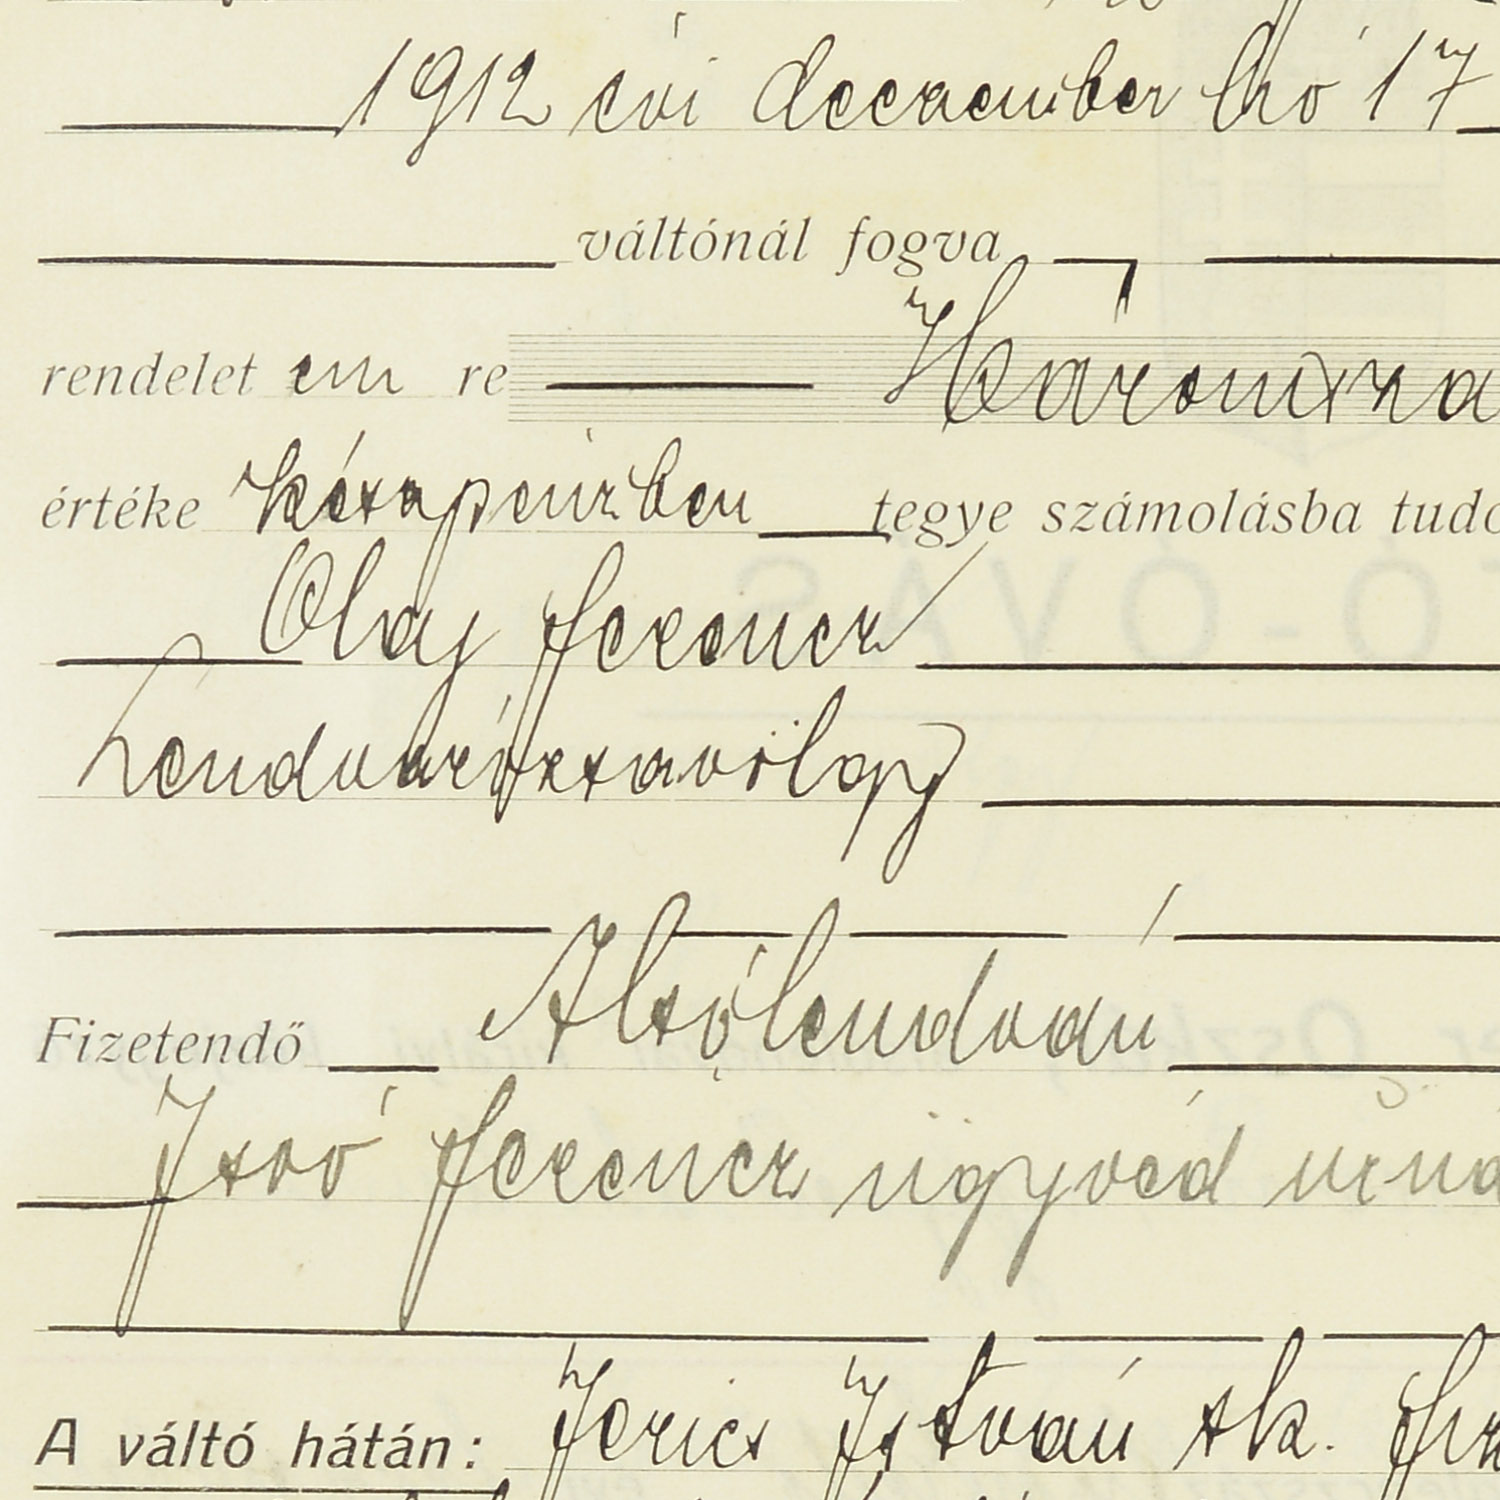 1912 évi deczember hó 17
váltónál fogva
rendelet em re Három
értéke készpénzben tegye számolásba tudó
Olaj Ferencz
Fizetendő Alsólendván
Isoó Ferencz ügyvéd urná
A váltó hátán: Jerics István sk.